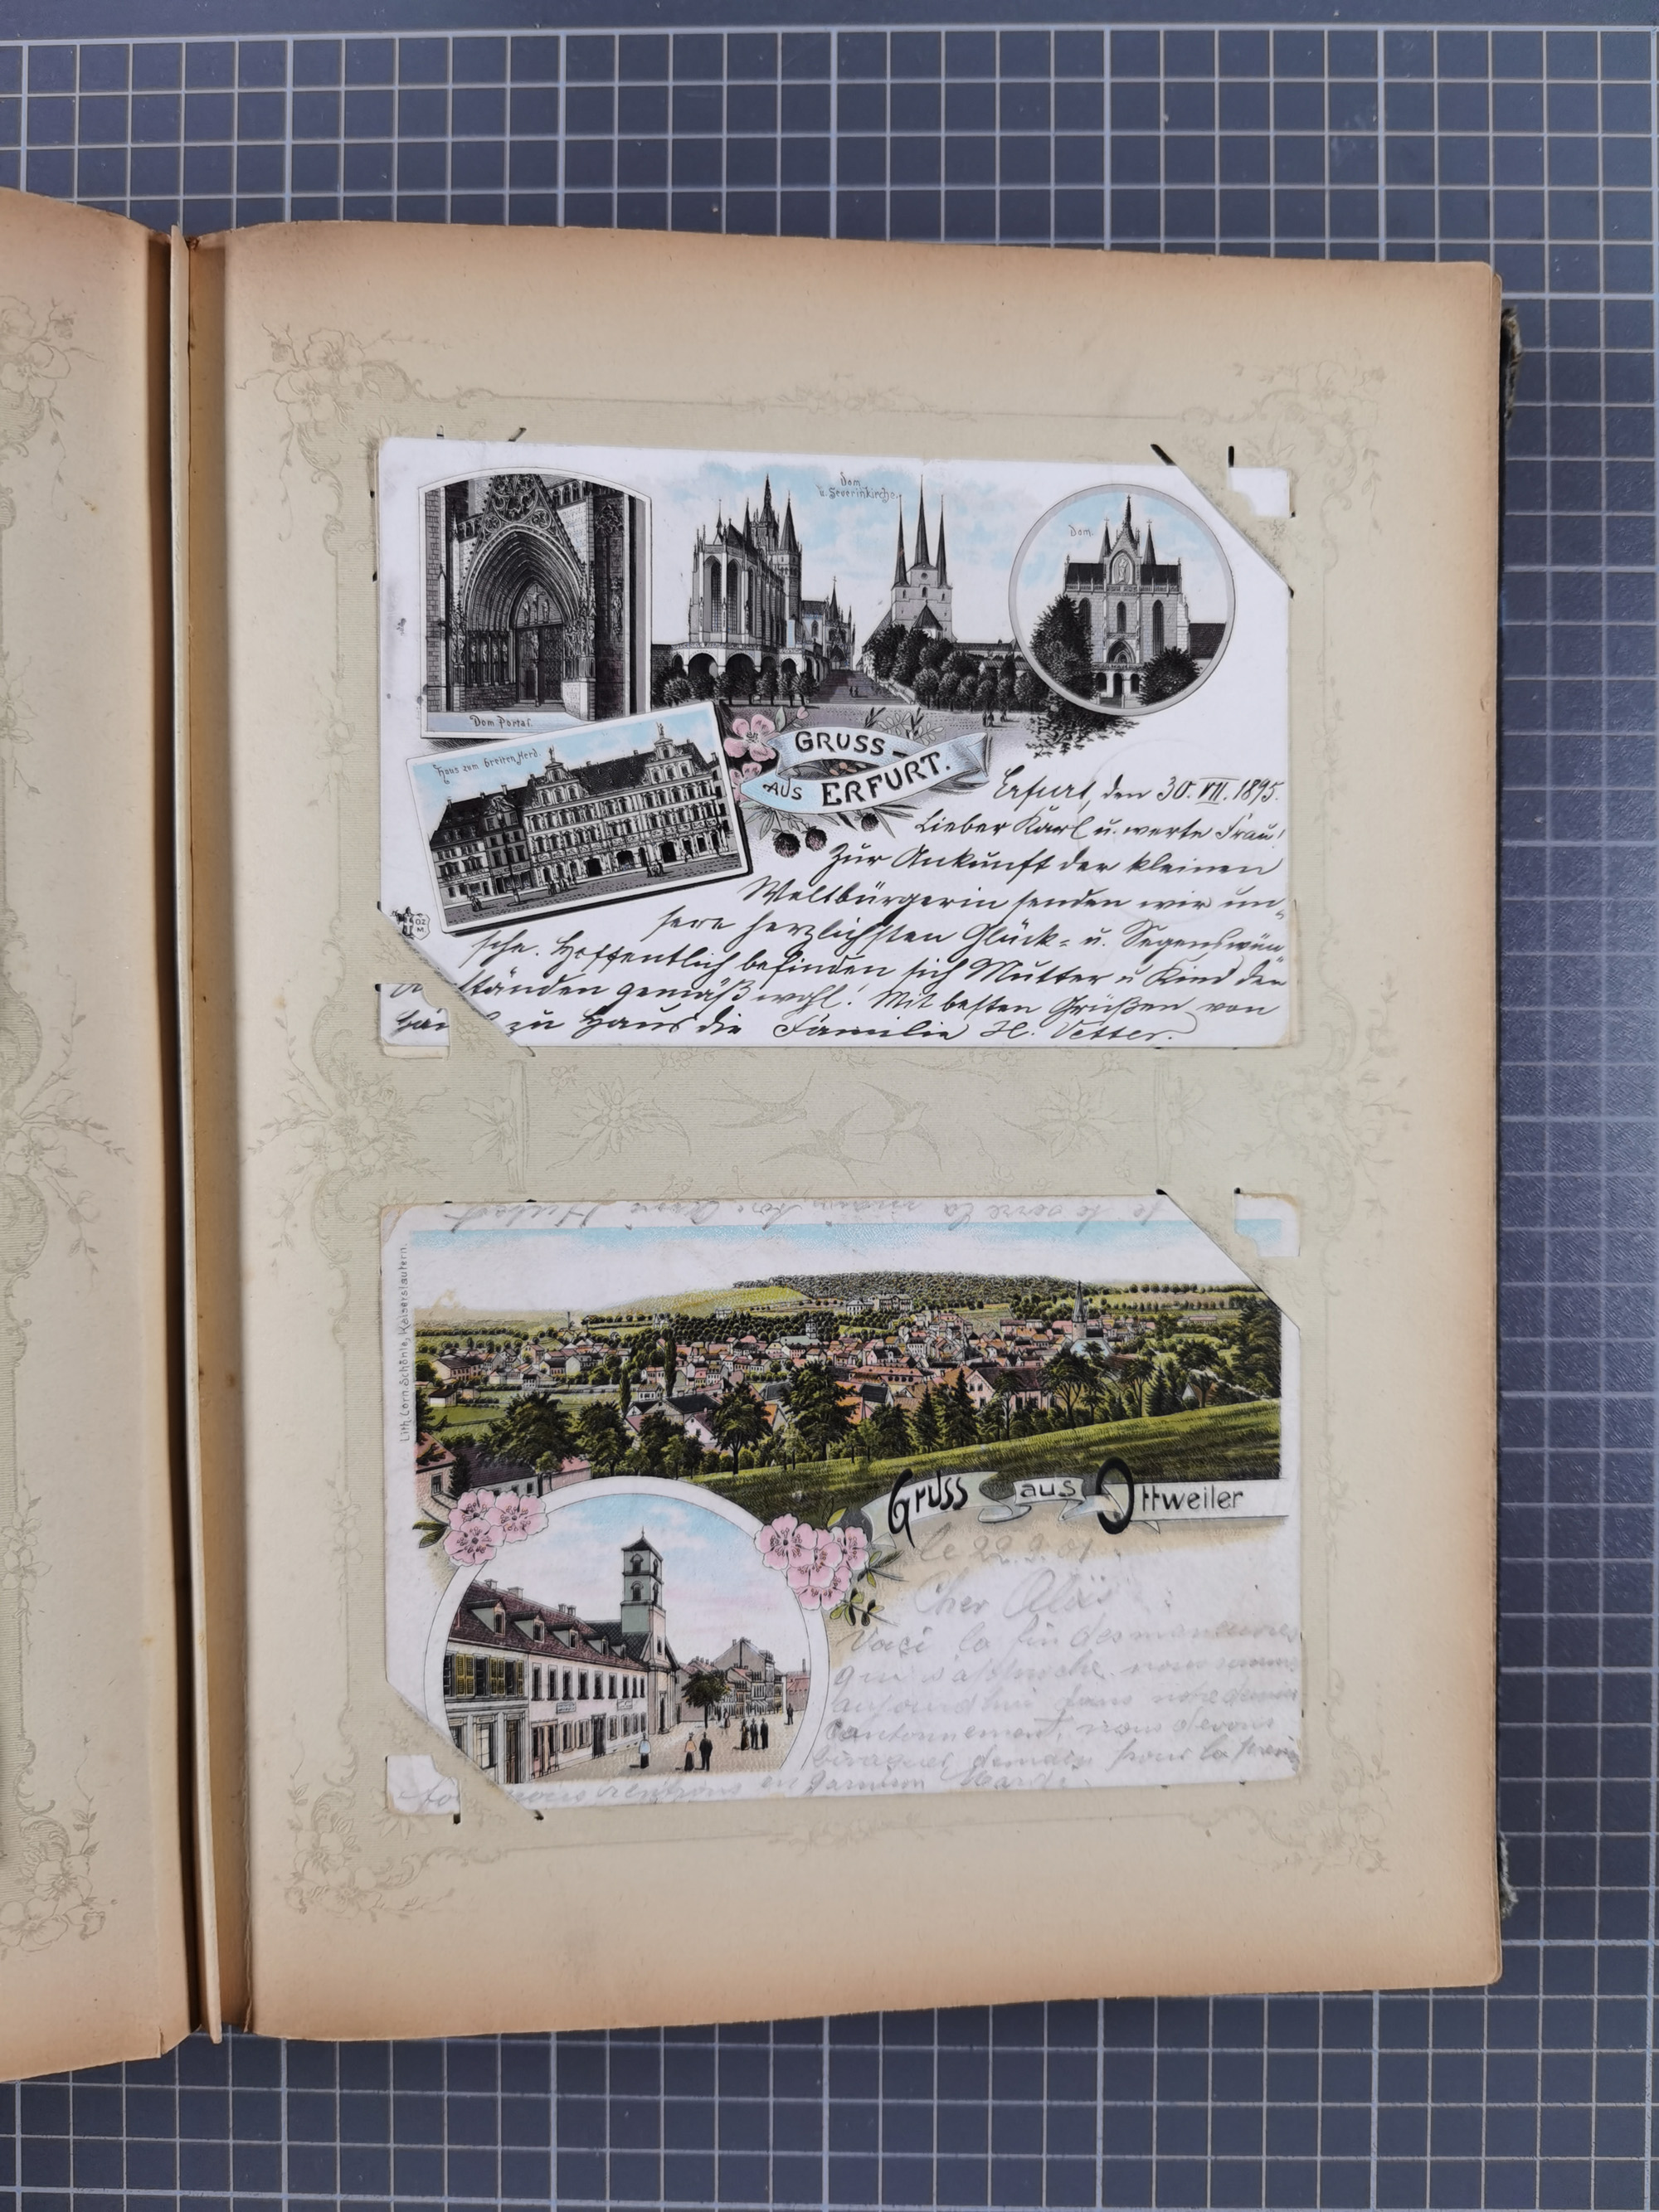 Dom
u. Severinkirche.
Dom.
Dom Portal.
Haus zum breiten Herd.
GRUSS
AUS ERFURT.
Erfurt, den 30. VII. 1895.
Lieber Karl u. werte Frau!
Zur Ankunft der kleinen
Weltbürgerin senden wir un-
sere herzlichsten Glück- u. Segenswün-
sche. Hoffentlich befinden sich Mutter u Kind den
ständen gemäß wohl! Mit besten Grüßen von
zu Haus die Familie H. Vetter.
je te serre la main
Lith. Corn. Schönle, Kaiserslautern.
Gruss aus Ottweiler
le 22.9.01.
Cher Aloïs
Voici la fin des manoeuvres
qui s'approche. nous sommes
aujourd'hui dans notre dernier
cantonnement, nous devons
bivaquer demain pour la
nous rentrons en garnison Mardi.